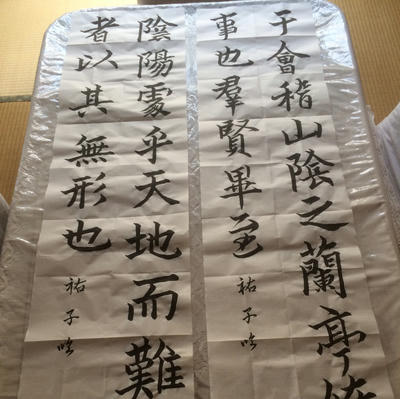 于會稽山陰之蘭亭
事也羣賢畢至
祐子
陰陽處乎天地而難
者以其無形也
祐子